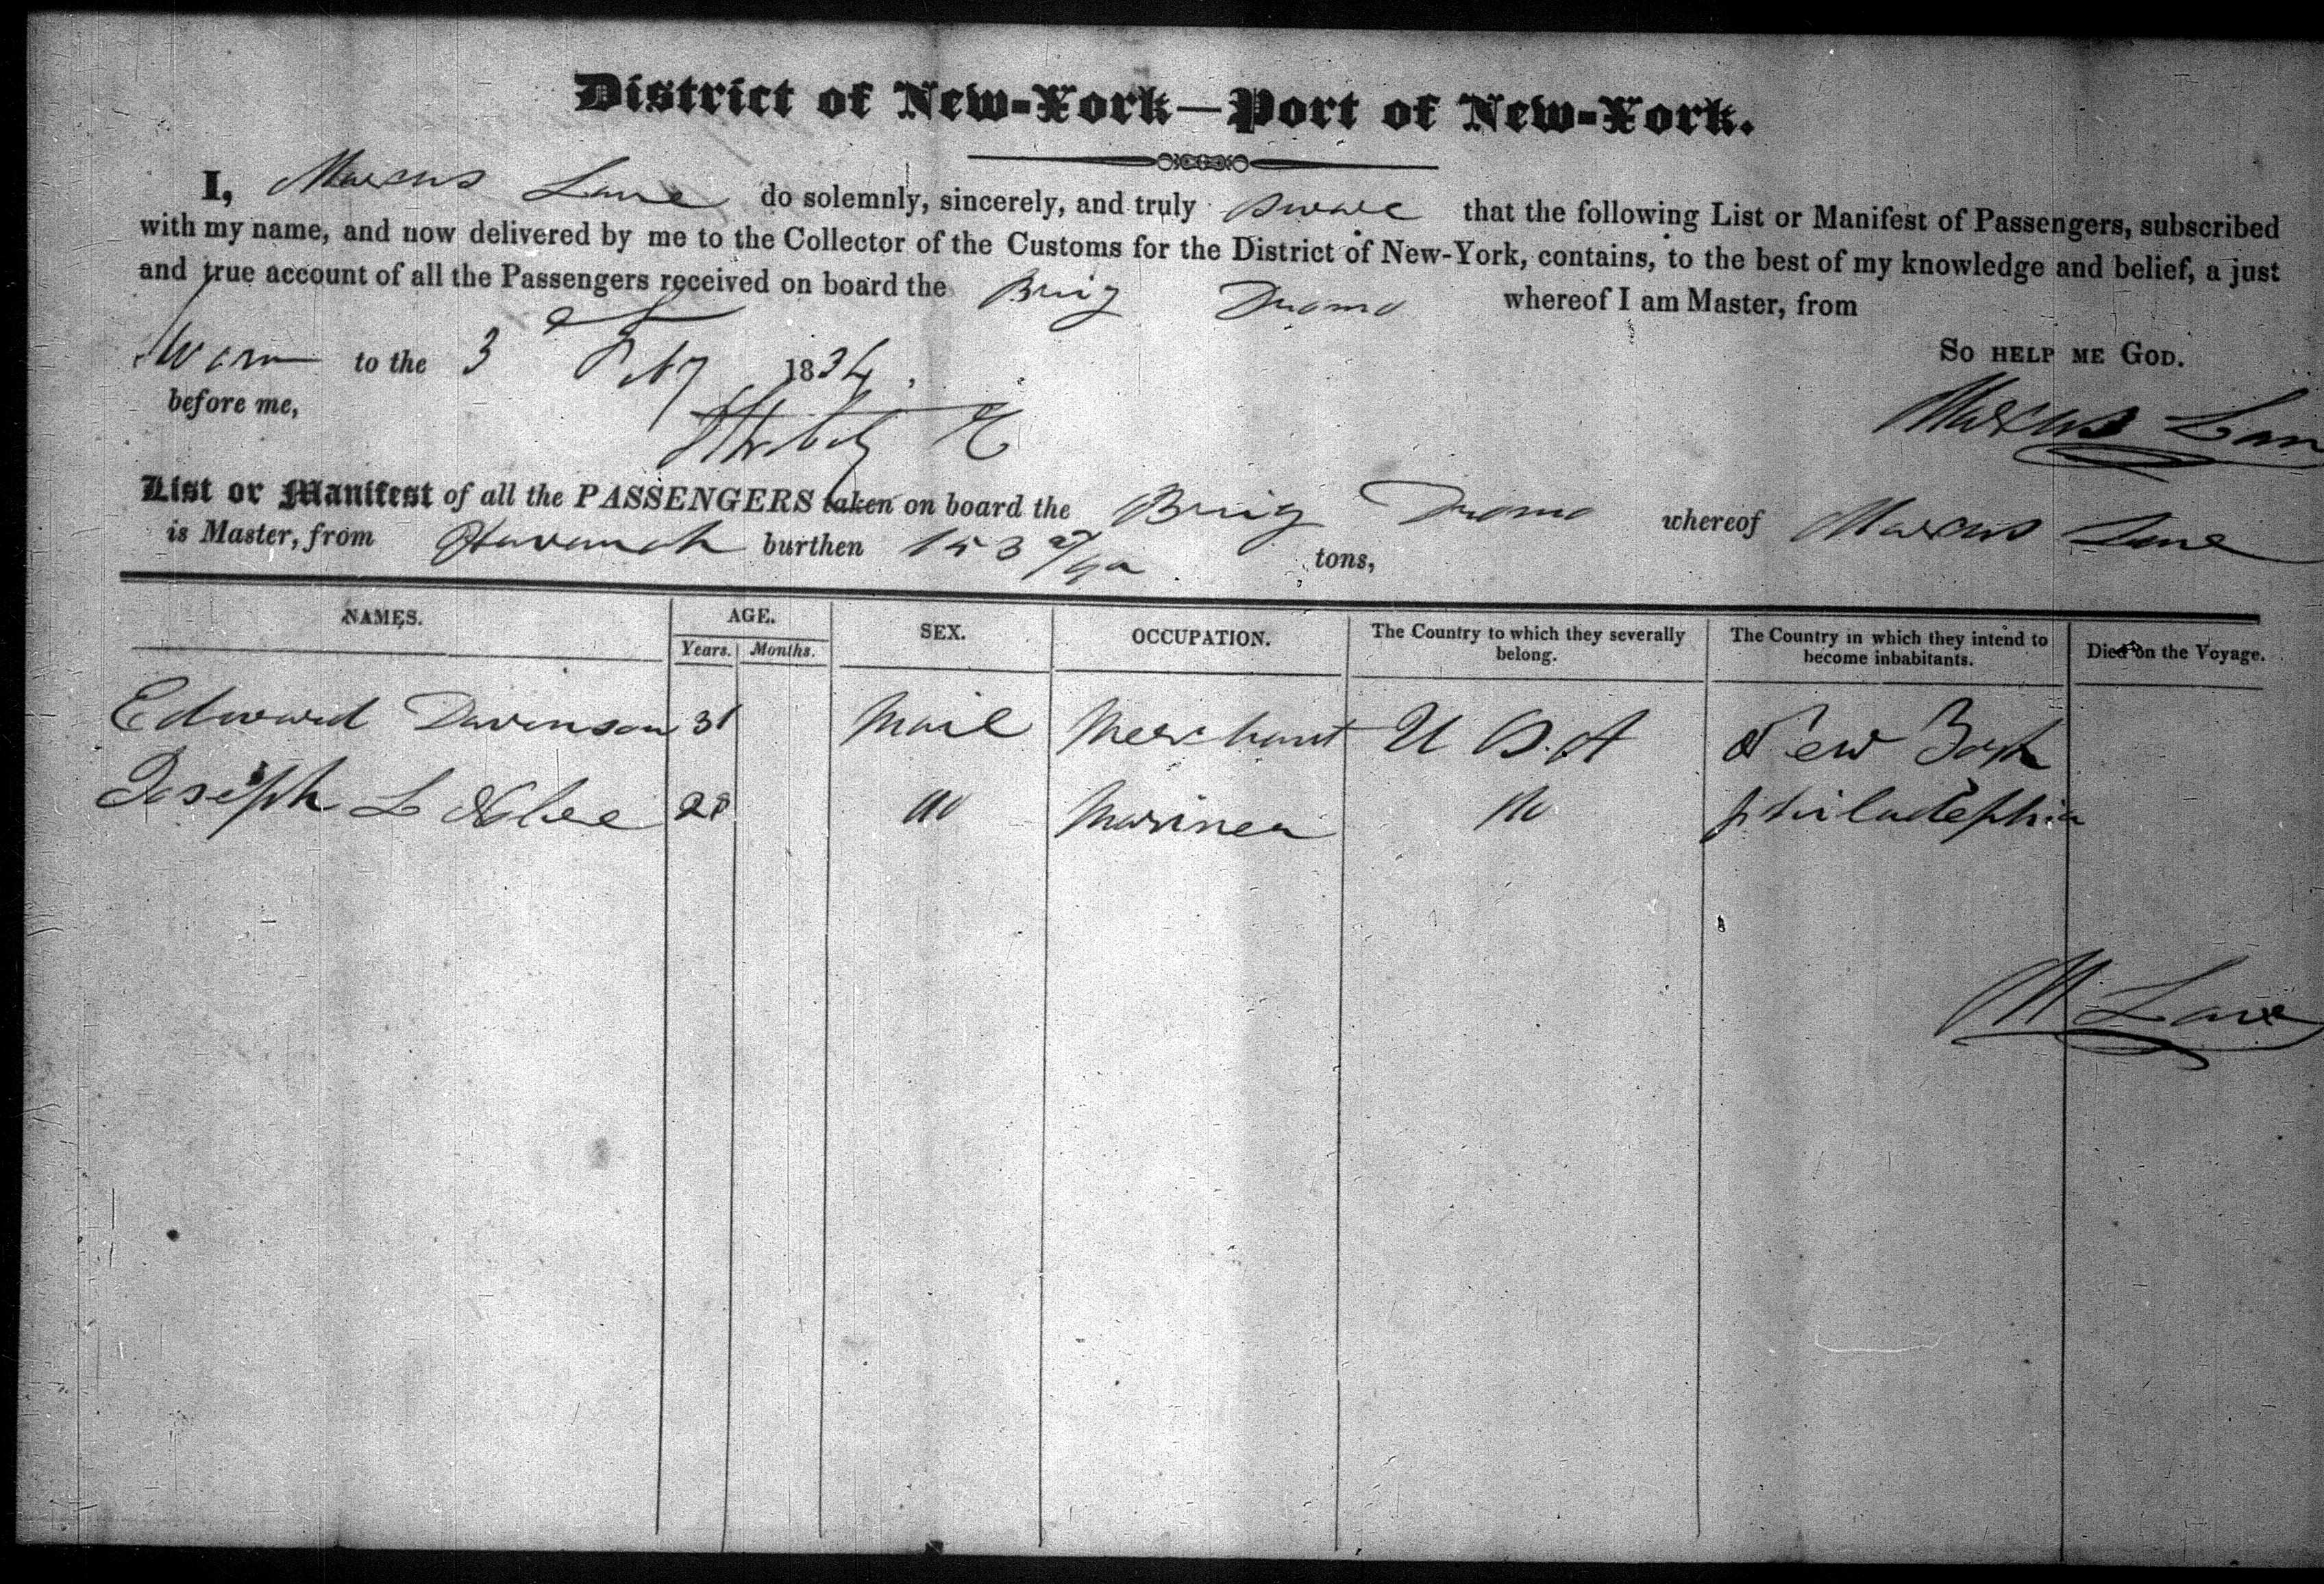 District of New-York—Port of New-York.
I, Marcus Lane do solemnly, sincerely, and truly that the following List or Manifest of Passengers, subscribed
with my name, and now delivered by me to the Collector of the Customs for the District of New-York, contains, to the best of my knowledge and belief, a just
and true account of all the Passengers received on board the Brig whereof I am Master, from
to the 3 1834
So help me God.
before me,
Marcus Lane
List or Manifest of all the PASSENGERS taken on board the Brig whereof Marcus Lane
is Master, from burthen 153 tons,
NAMES. AGE. SEX. OCCUPATION. The Country to which they severally belong. The Country in which they intend to become inhabitants. Died on the Voyage.
Years. Months.
Edward 31 Mail Merchant U S. A New York
Joseph L 28 Mariner Philadelphia
M Lane